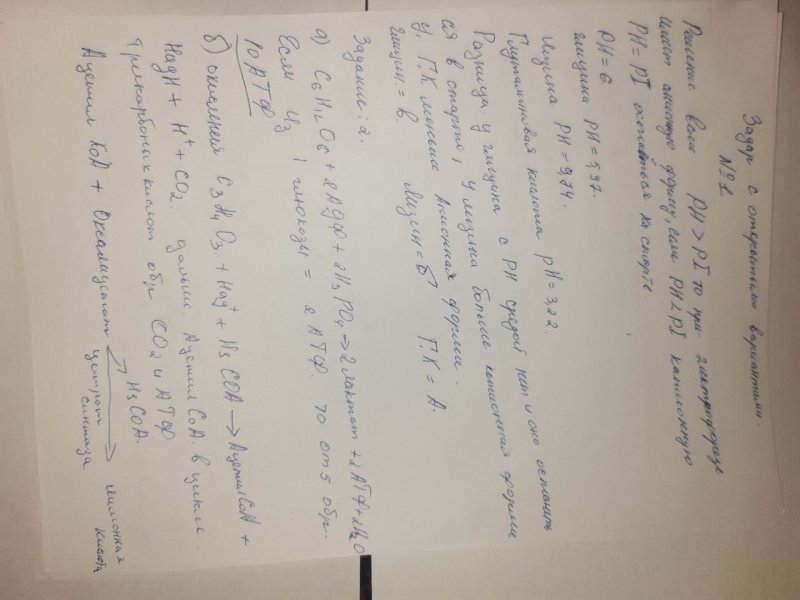 Задар с открытыми вариантами.
№1
Решение если PH > PI то при электрофорезе
имеет анионную форму, если PH < PI катионную
PH = PI остаётся на старте
PH = 6
глицина PH = 5,97.
лизина PH = 9,74.
Глутаминовая кислота PH = 3,22.
Разница у глицина с PH средой нет и оно останеть
ся в старте, у лизина больше катионная форма
у ГК меньше Анионная форма.
глицин = в лизин = б ГК = А.
Задание: 2.
а) C6H12O6 + 2АДФ + 2H3PO4 → 2 лактат + 2АТФ + 2H2O
Если из 1 глюкозы = 2 АТФ. то от 5 обр.
10 АТФ
б) окисления C3H4O3 + Над+ + HSCOA → Ацетил CoA +
НадH + H+ + CO2. дальше. Ацетил CoA. в цикле.
Трикарбоных кислот обр CO2 и АТФ
Ацетил КоА + Оксалацетат цитрат синтаза → лимонная кислота
HSCoA.